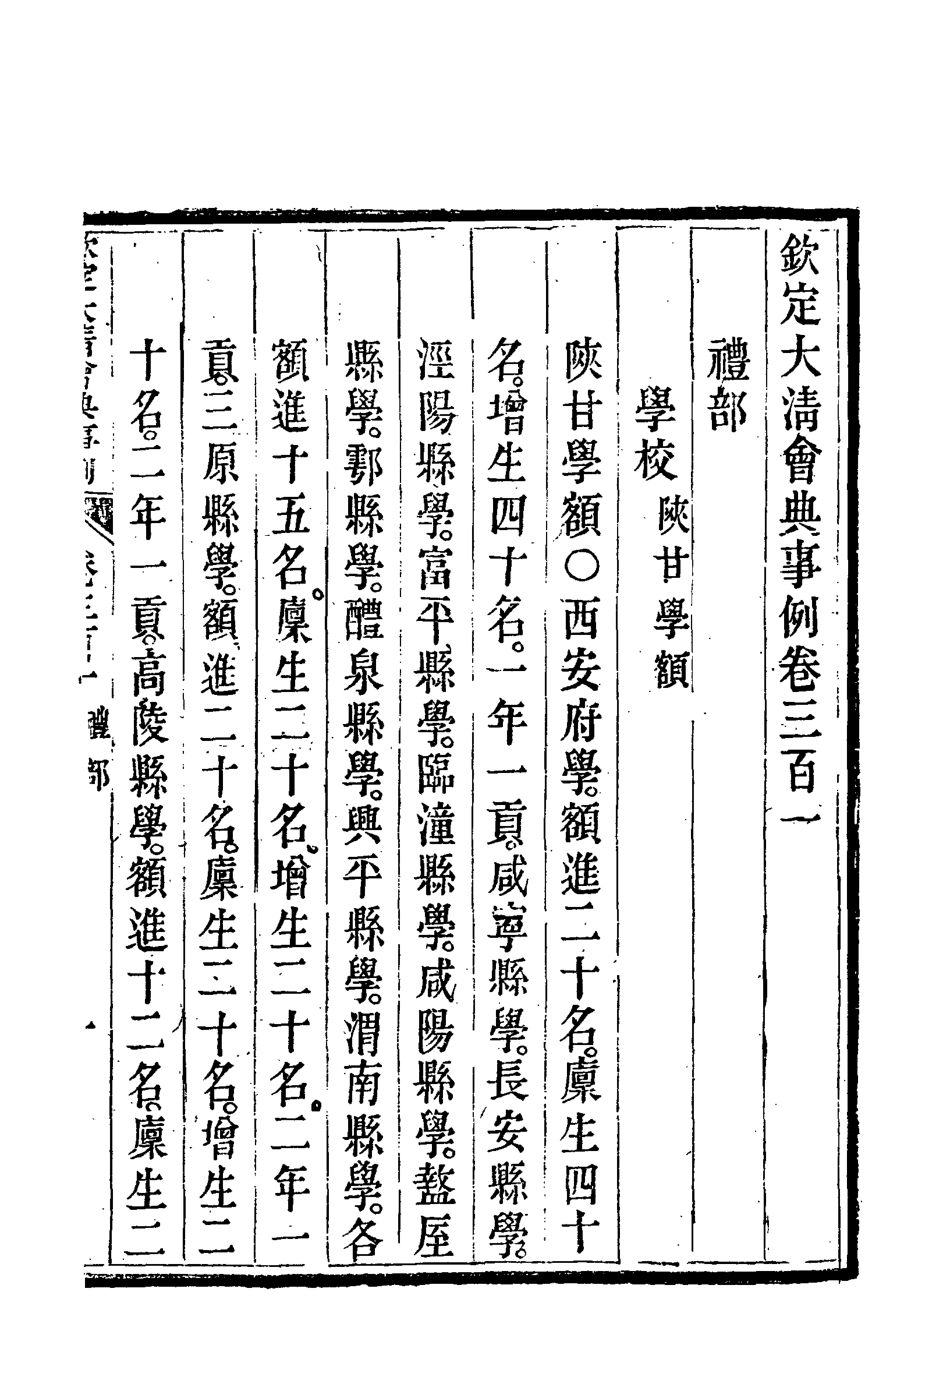 欽定大清會典事例卷三百一
禮部
學校陝甘學額
陝甘學額○西安府學。額進二十名。廩生四十
名。增生四十名。一年一貢。咸寧縣學。長安縣學。
涇陽縣學。富平縣學。臨潼縣學。咸陽縣學。盩厔
縣學。鄠縣學。醴泉縣學。興平縣學。渭南縣學。各
額進十五名。廩生二十名。增生二十名。二年一
貢。三原縣學。額進二十名。廩生二十名。增生二
十名。二年一貢。高陵縣學。額進十二名。廩生二
欽定大清會典事例 卷三百一 禮部 一